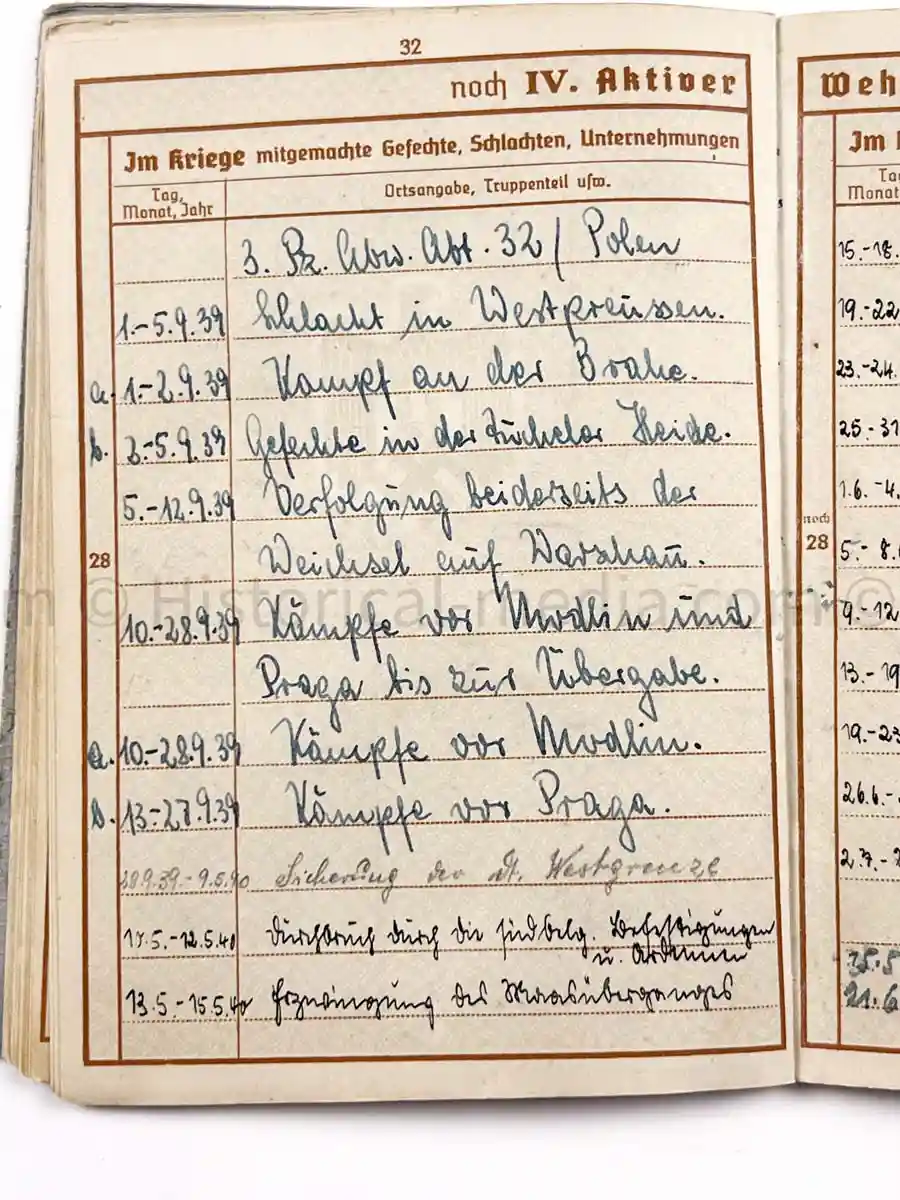 32
noch IV. Aktiver
Im Kriege mitgemachte Gefechte, Schlachten, Unternehmungen
Tag, Monat, Jahr
Ortsangabe, Truppenteil usw.
3. Pz. Abw. Abt. 32 / Polen
1.-5.9.39 Schlacht in Westpreussen.
a. 1.-2.9.39 Kampf an der Brahe.
b. 2.-5.9.39 Gefechte in der Tucheler Heide.
5.-12.9.39 Verfolgung beiderseits der
28 Weichsel auf Warschau.
10.-28.9.39 Kämpfe vor Modlin und
Praga bis zur Übergabe.
a. 10.-28.9.39 Kämpfe vor Modlin.
b. 13.-27.9.39 Kämpfe vor Praga.
28.9.39.-9.5.40 Sicherung der dt. Westgrenze
10.5.-12.5.40 Durchbruch durch die südbelg. Befestigungen
u. Ardennen
13.5.-15.5.40 Erzwingung des Maasüberganges
Weh
Im
Monat,
15.-18.
19.-22
23.-24.
25.-31
1.6.-4.
noch
28
5.-8.
9.-12
13.-19
19.-23
26.6.-
2.7.-
25.5
21.6
m © Historical-media.com ©